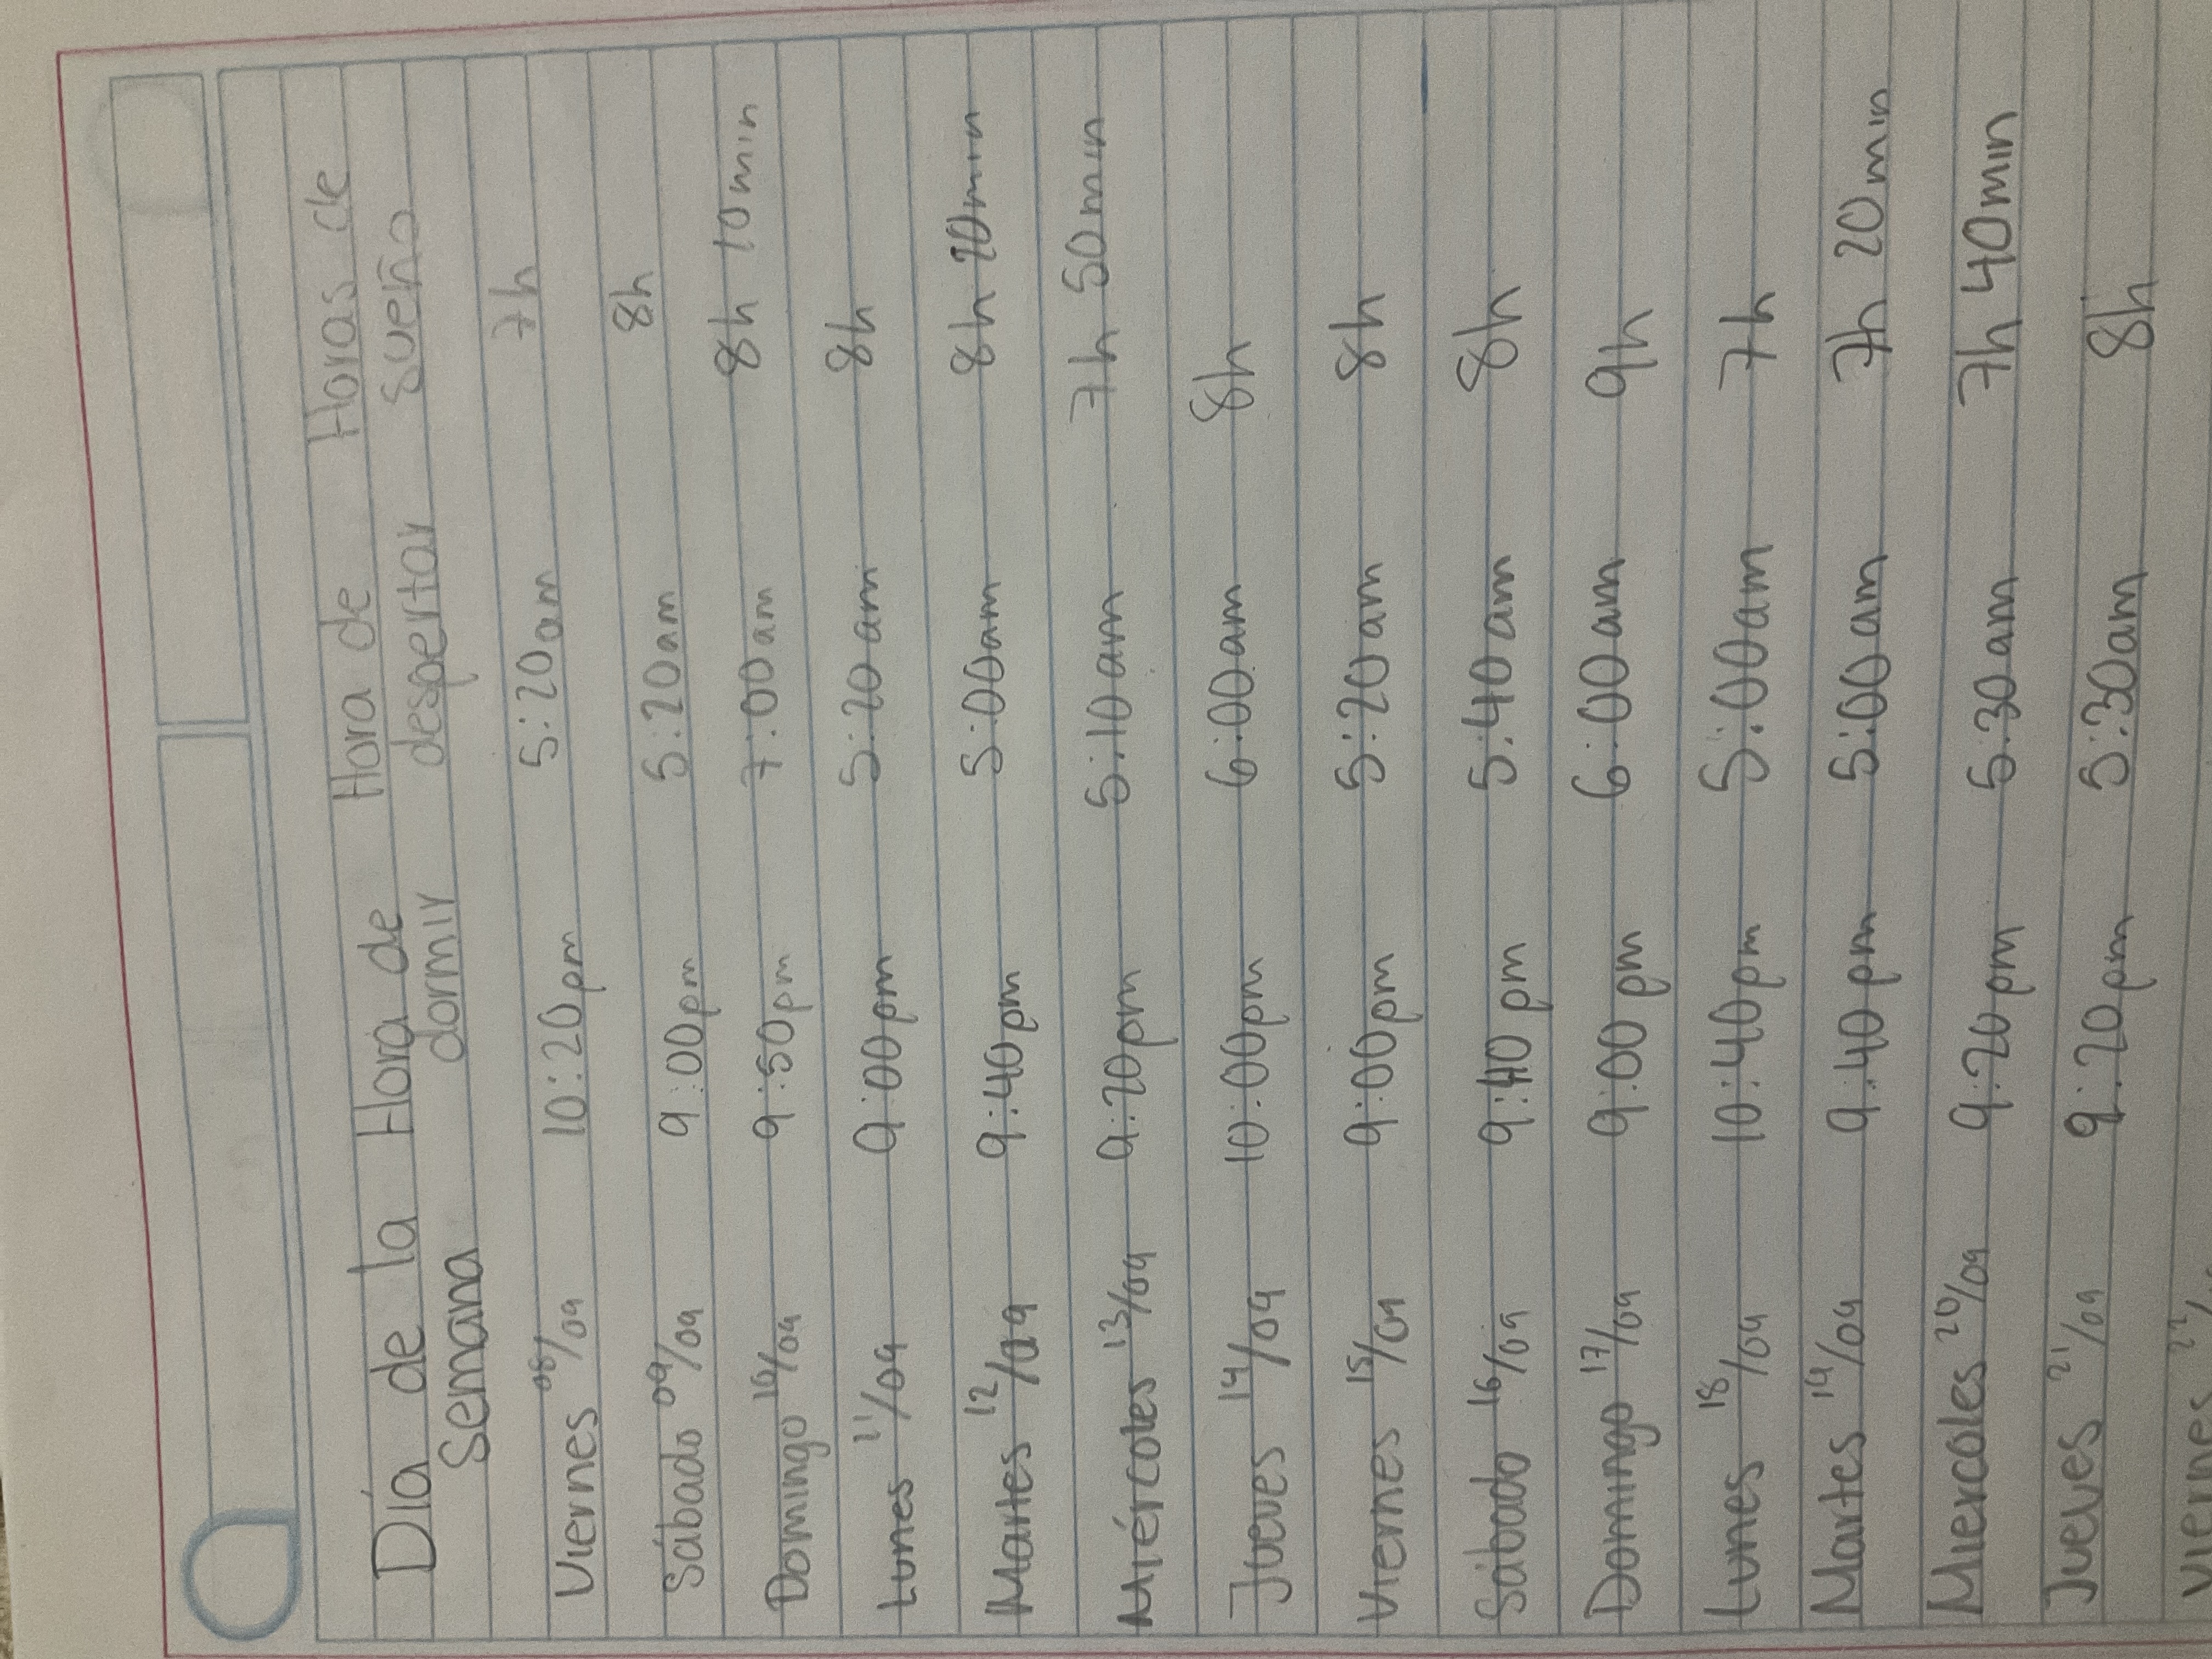 Día de la Hora de Hora de Horas de
Semana dormir despertar sueño
Viernes 08/09 10:20pm 5:20am 7h
Sábado 09/09 9:00pm 5:20am 8h
Domingo 10/09 9:50pm 7:00am 8h 10min
Lunes 11/09 9:00pm 5:20am 8h
Martes 12/09 9:40pm 5:00am 8h 20min
Miércoles 13/09 9:20pm 5:10am 7h 50min
Jueves 14/09 10:00pm 6:00am 8h
Viernes 15/09 9:00pm 5:20am 8h
Sábado 16/09 9:40pm 5:40am 8h
Domingo 17/09 9:00pm 6:00am 9h
Lunes 18/09 10:40pm 5:00am 7h
Martes 19/09 9:40pm 5:00am 7h 20min
Miercoles 20/09 9:20pm 5:30am 7h 40min
Jueves 21/09 9:20pm 5:30am 8h
Viernes 22/